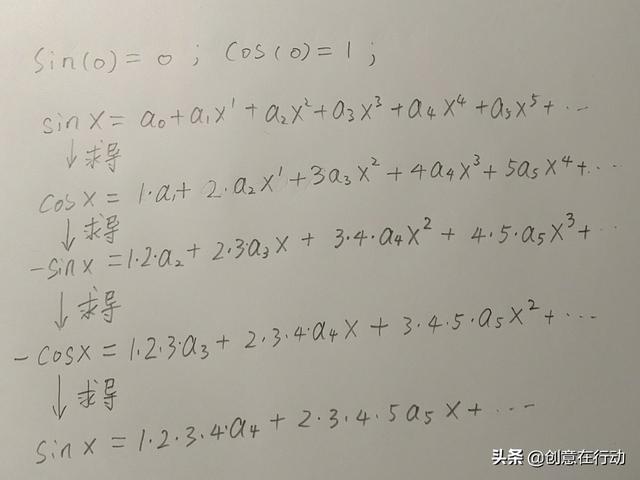 sin(0) = 0 ; cos(0) = 1 ;
sin x = a₀ + a₁x¹ + a₂x² + a₃x³ + a₄x⁴ + a₅x⁵ + ···
↓求导
cos x = 1·a₁ + 2·a₂x¹ + 3a₃x² + 4a₄x³ + 5a₅x⁴ + ···
↓求导
-sin x = 1·2·a₂ + 2·3·a₃x + 3·4·a₄x² + 4·5·a₅x³ + ···
↓求导
-cos x = 1·2·3·a₃ + 2·3·4·a₄x + 3·4·5·a₅x² + ···
↓求导
sin x = 1·2·3·4·a₄ + 2·3·4·5a₅x + ···
头条 @创意在行动